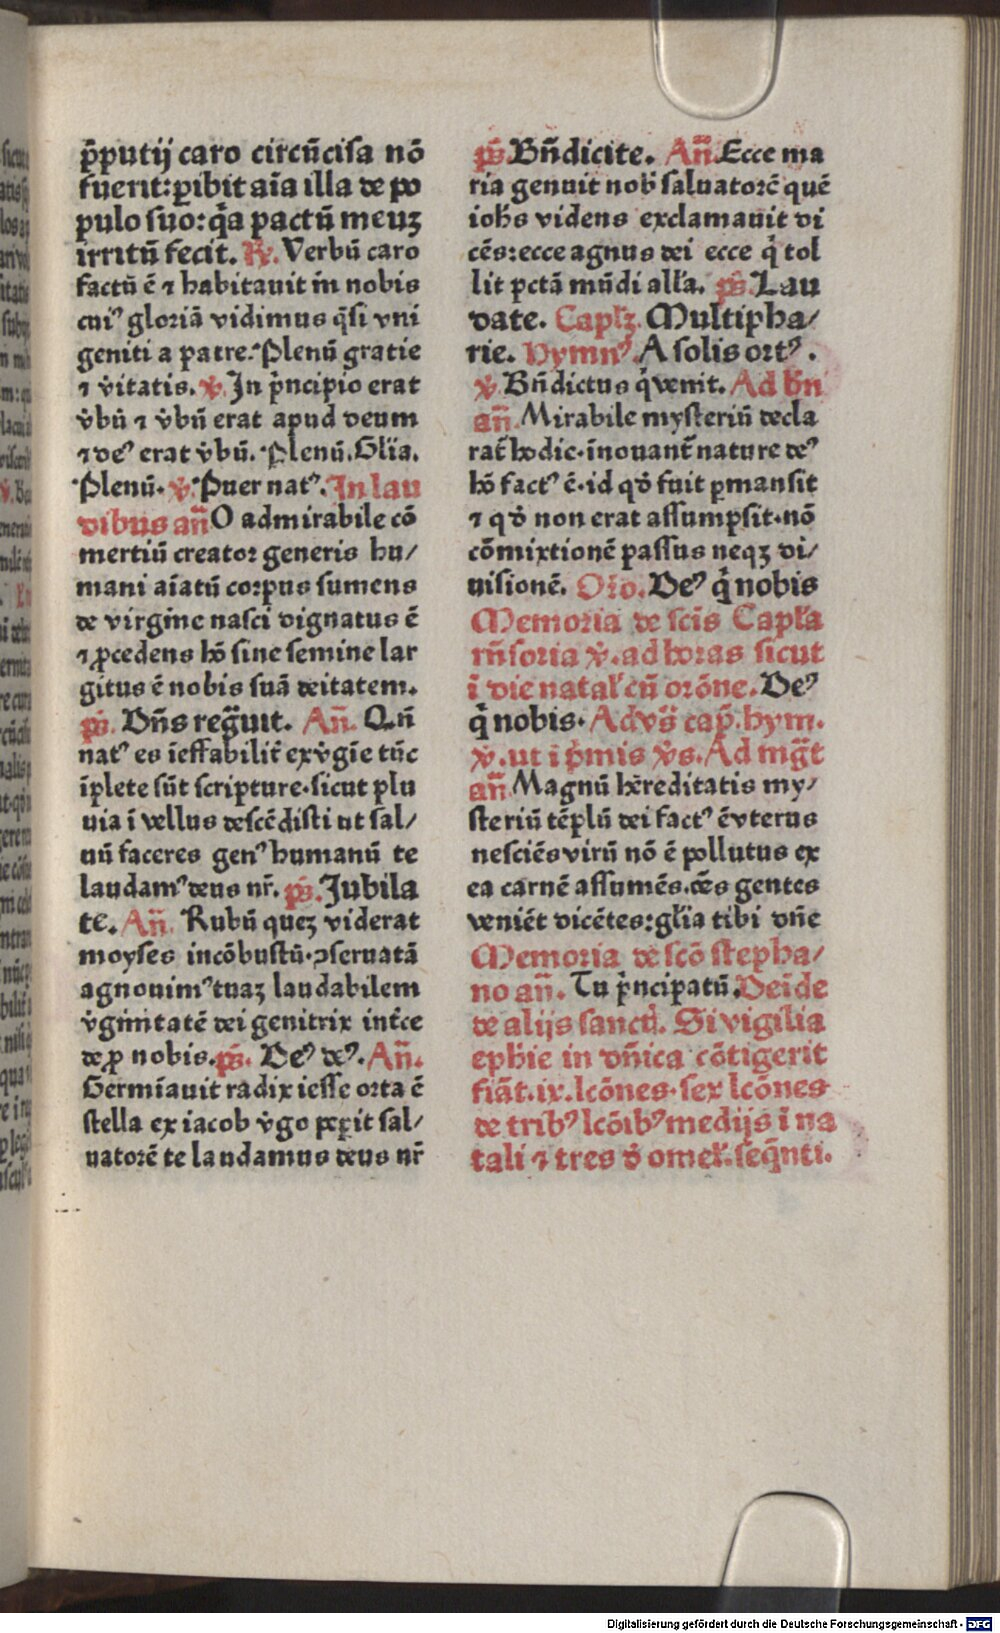 p̄putij caro circūcisa nō
fuerit: ꝑibit aīa illa de po
pulo suo: q̄a pactū meuꝫ
irritū fecit. R̷. Verbū caro
factū ē ⁊ habitauit in nobis
cuiꝰ gloriā vidimus q̄si vni
geniti a patre. Plenū gratie
⁊ v̄itatis. V̷. In p̄ncipio erat
v̄bū ⁊ v̄bū erat apud deum
⁊ deꝰ erat v̄bū. Plenū. Glīa.
Plenū. V̷. Puer natꝰ. In lau
dibus an̄ O admirabile cō
mertiū creator generis hu/
mani aīatū corpus sumens
de virgine nasci dignatus ē
⁊ ꝓcedens hō sine semine lar
gitus ē nobis suā deitatem.
ps̄. Dn̄s regͣuit. An̄. Qn̄
natꝰ es īeffabilit̄ ex v̄gīe tūc
īplete sūt scripture. sicut plu
uia ī vellus descēdisti ut sal/
uū faceres genꝰ humanū te
laudamꝰ deus nr̄. ps̄. Jubila
te. An̄. Rubū queꝫ viderat
moyses incōbustū. ꝯseruatā
agnouimꝰ tuaꝫ laudabilem
v̄ginitatē dei genitrix int̄ce
de ꝓ nobis. ps̄. Deꝰ deꝰ. An̄.
Germīauit radix iesse orta ē
stella ex iacob v̄go peꝑit sal/
uatorē te laudamus deus nr̄
ps̄. Bn̄dicite. An̄. Ecce ma
ria genuit nob̄ saluatorē quē
ioh̄s videns exclamauit di
cēs: ecce agnus dei ecce q̇ tol
lit pctā mūdi all'a. ps̄. Lau
date. Capl'ꝫ. Multipha/
rie. Hymnꝰ. A solis ortꝰ.
V̷. Bn̄dictus q̇ venit. Ad bn̄
an̄. Mirabile mysteriū decla
rat̄ hodie. īnouant̄ nature deꝰ
hō factꝰ ē. id qd̄ fuit ꝑmansit
⁊ qd̄ non erat assumpsit. nō
cōmixtionē passus neqꝫ di/
uisionē. Oro. Deꝰ q̇ nobis
Memoria de scīs Capl'a
rn̄soria V̷. ad horas sicut
ī die natal' cū orōne. Deꝰ
q̇ nobis. Ad vs̄ cap̄. hym.
V̷. ut ī p̄mis v̄s. Ad mgͣt
an̄. Magnū hereditatis my/
steriū tēplū dei factꝰ ē vterus
nesciēs virū nō ē pollutus ex
ea carnē assumēs. oēs gentes
veniēt dicētes: gl'ia tibi dn̄e
Memoria de scō stepha/
no an̄. Tu p̄ncipatū. Deīde
de alijs sanct̄. Si vigilia
eph̄ie in dn̄ica cōtigerit
fiāt. ix. lcōnes. sex lcōnes
de tribꝰ lcōibꝰ medijs ī na
tali ⁊ tres d̄ omel'. seq̄nti.
Digitalisierung gefördert durch die Deutsche Forschungsgemeinschaft - DFG